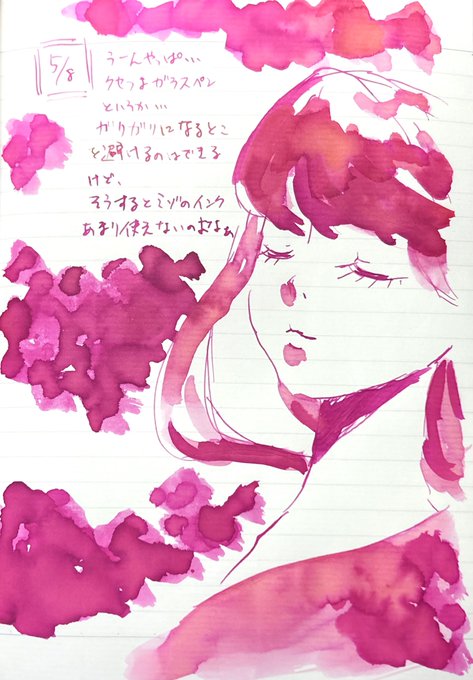 5/8
うーんやっぱ…
クセつよガラスペン
というか…
ガリガリになるとこ
を避けるのはできる
けど、
そうするとミゾのインク
あまり使えないのよなぁ